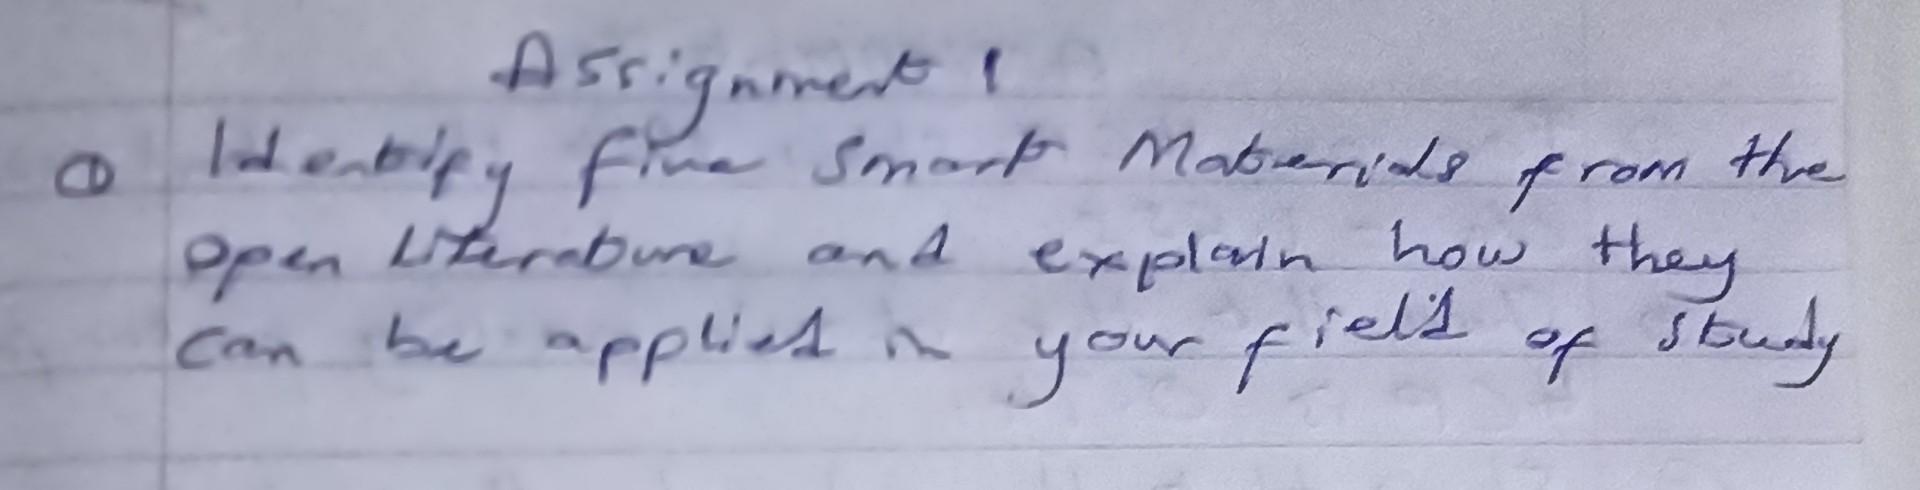 Assignment 1
① Identify five Smart Materials from the
open Literature and explain how they
can be applied in your field of study